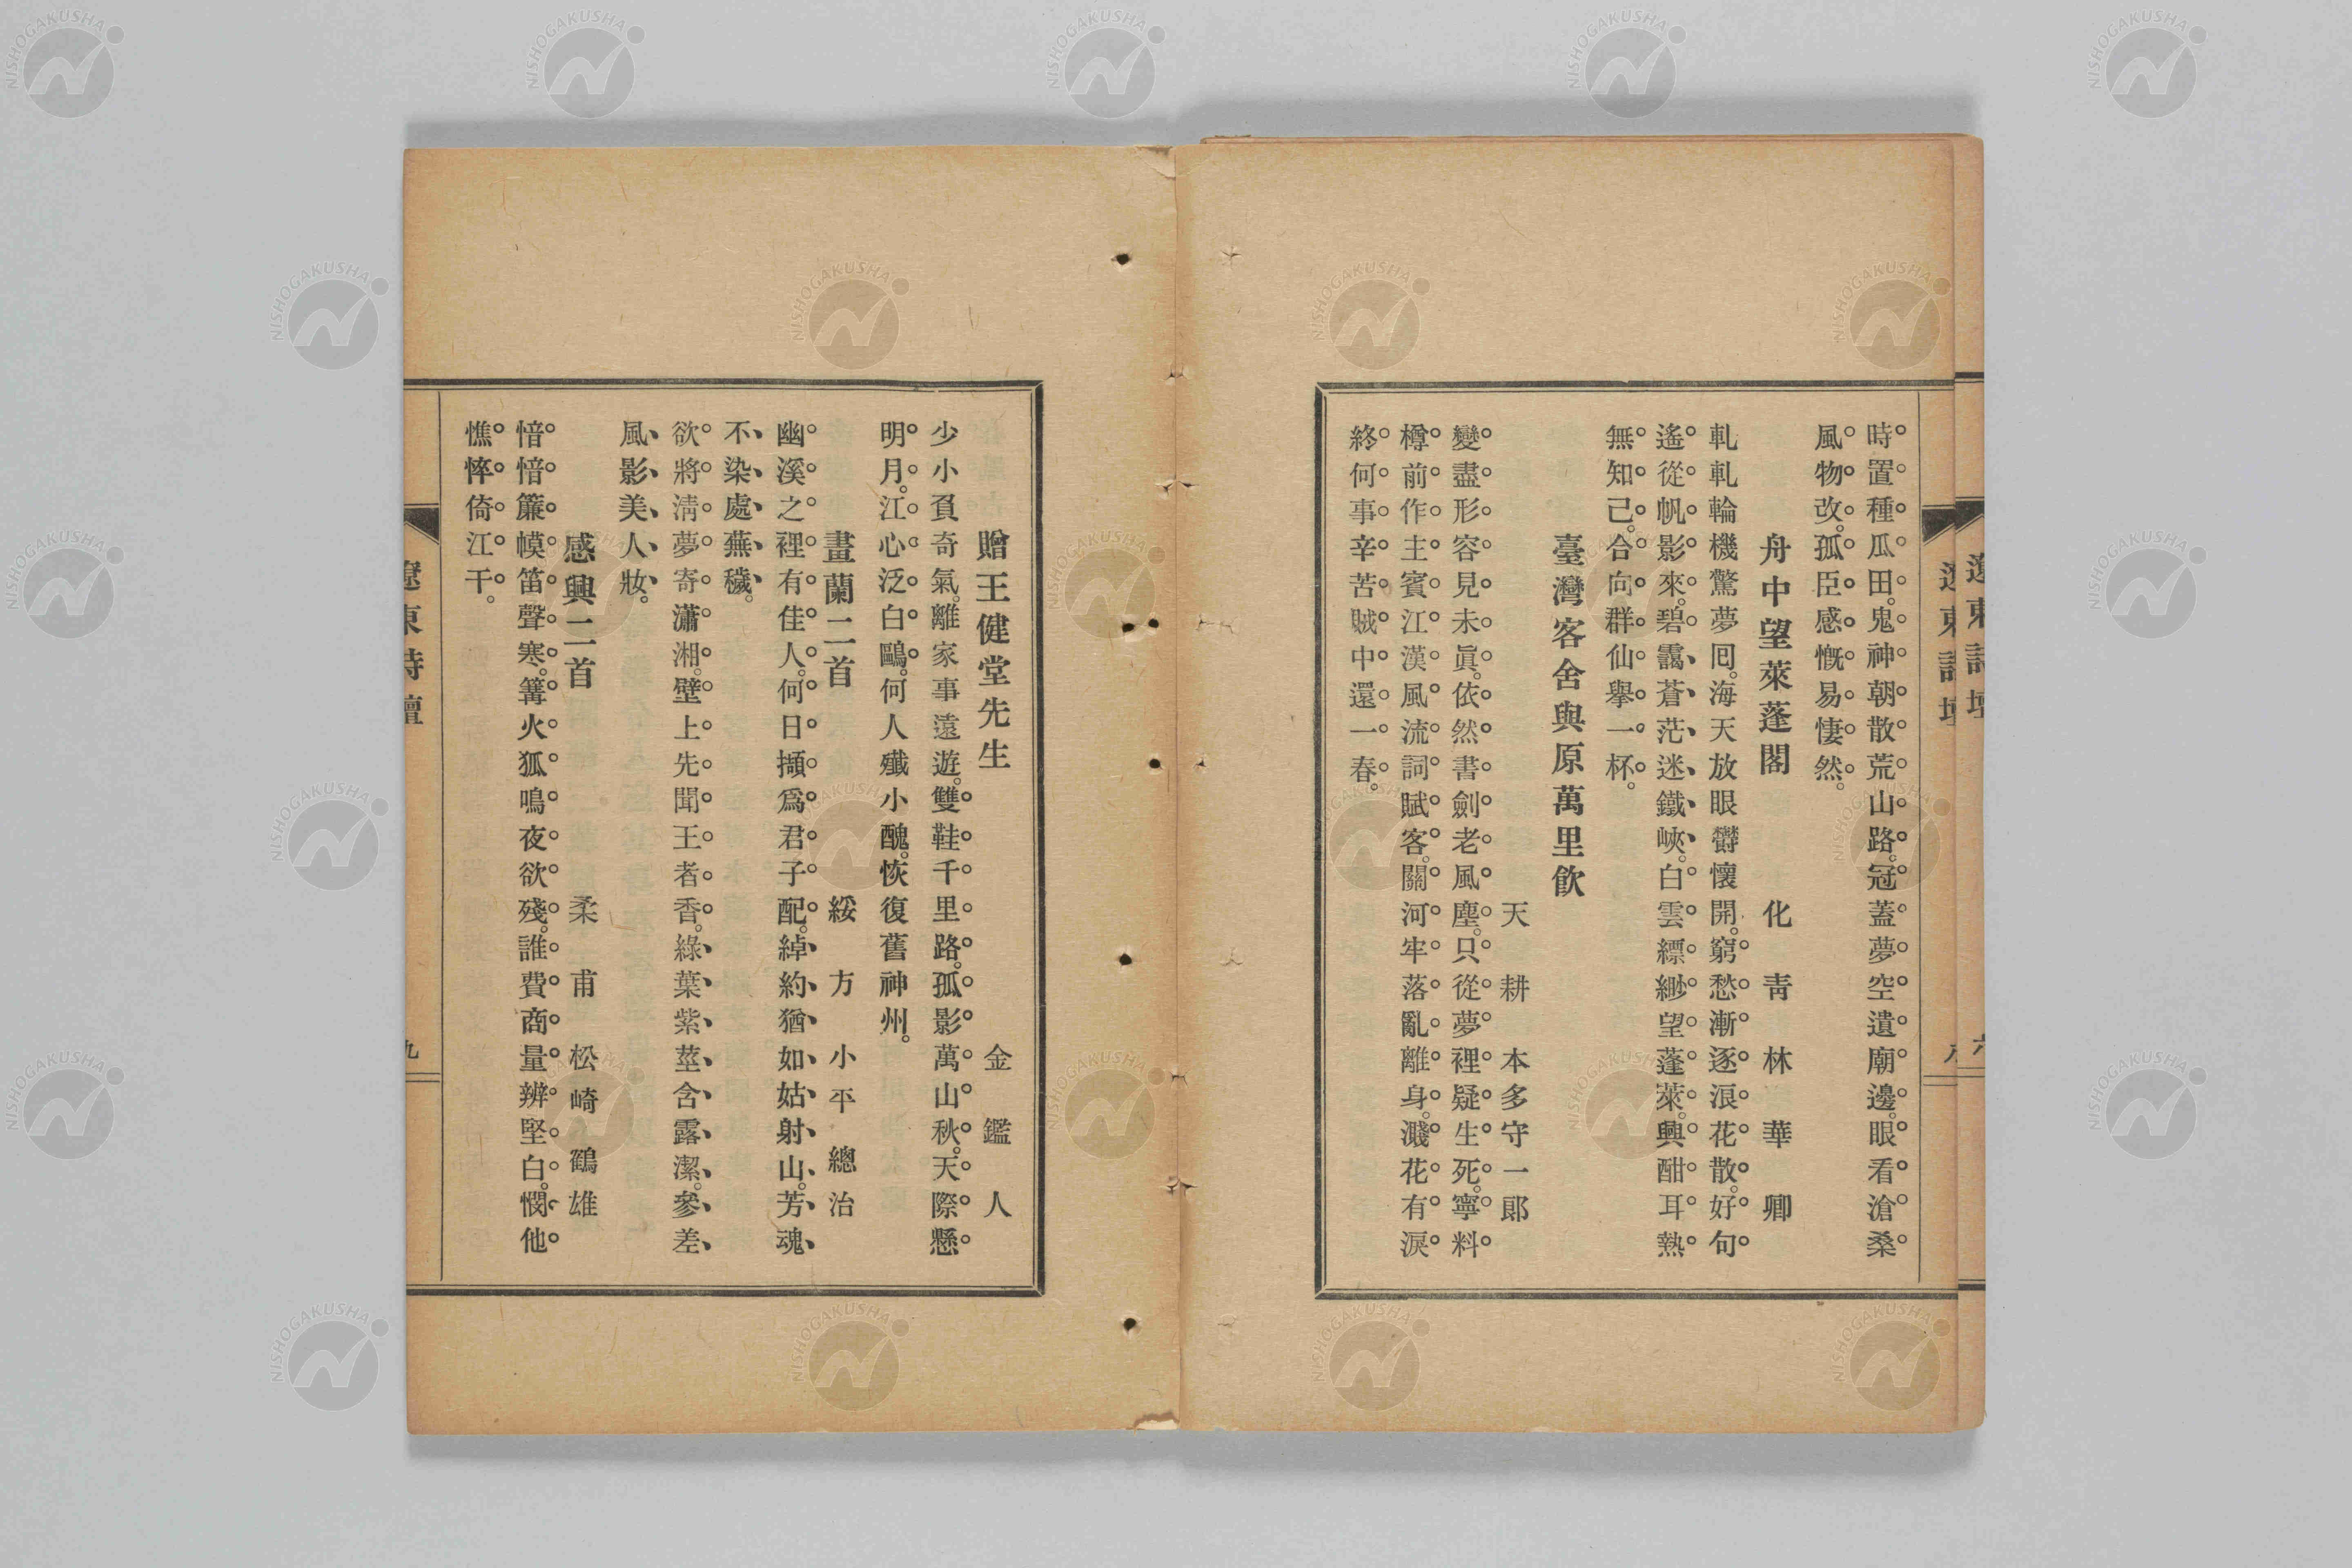 時置種瓜田。鬼神朝散荒山路。冠蓋夢空遺廟邊。眼看滄桑
風物改。孤臣感慨易悽然。
舟中望萊蓬閣　化靑　林華卿
軋軋輪機驚夢囘。海天放眼欝懷開。窮愁漸逐浪花散。好句
遙從帆影來。碧靄蒼茫迷鐵峽。白雲縹緲望蓬萊。興酣耳熱
無知己。合向群仙擧一杯。
臺灣客舍與原萬里飮
天耕　本多守一郞
變盡形容見未眞。依然書劍老風塵。只從夢裡疑生死。寧料
樽前作主賓。江漢風流詞賦客。關河牢落亂離身。濺花有淚
終何事。辛苦賊中還一春。
贈王健堂先生
金鑑人
少小負奇氣。離家事遠遊。雙鞋千里路。孤影萬山秋。天際懸
明月。江心泛白鷗。何人殲小醜。恢復舊神州。
畫蘭二首　綏方　小平總治
幽溪之裡有佳人。何日擷爲君子配。綽約猶如姑射山。芳魂
不染處蕪穢。
欲將淸夢寄瀟湘。壁上先聞王者香。綠葉紫莖含露潔。參差
風影美人妝。
感興二首　柔甫　松崎鶴雄
愔愔簾幙笛聲寒。篝火狐鳴夜欲殘。誰費商量辨堅白。憫他
憔悴倚江干。
遼東詩壇
九
NISHOGAKUSHA